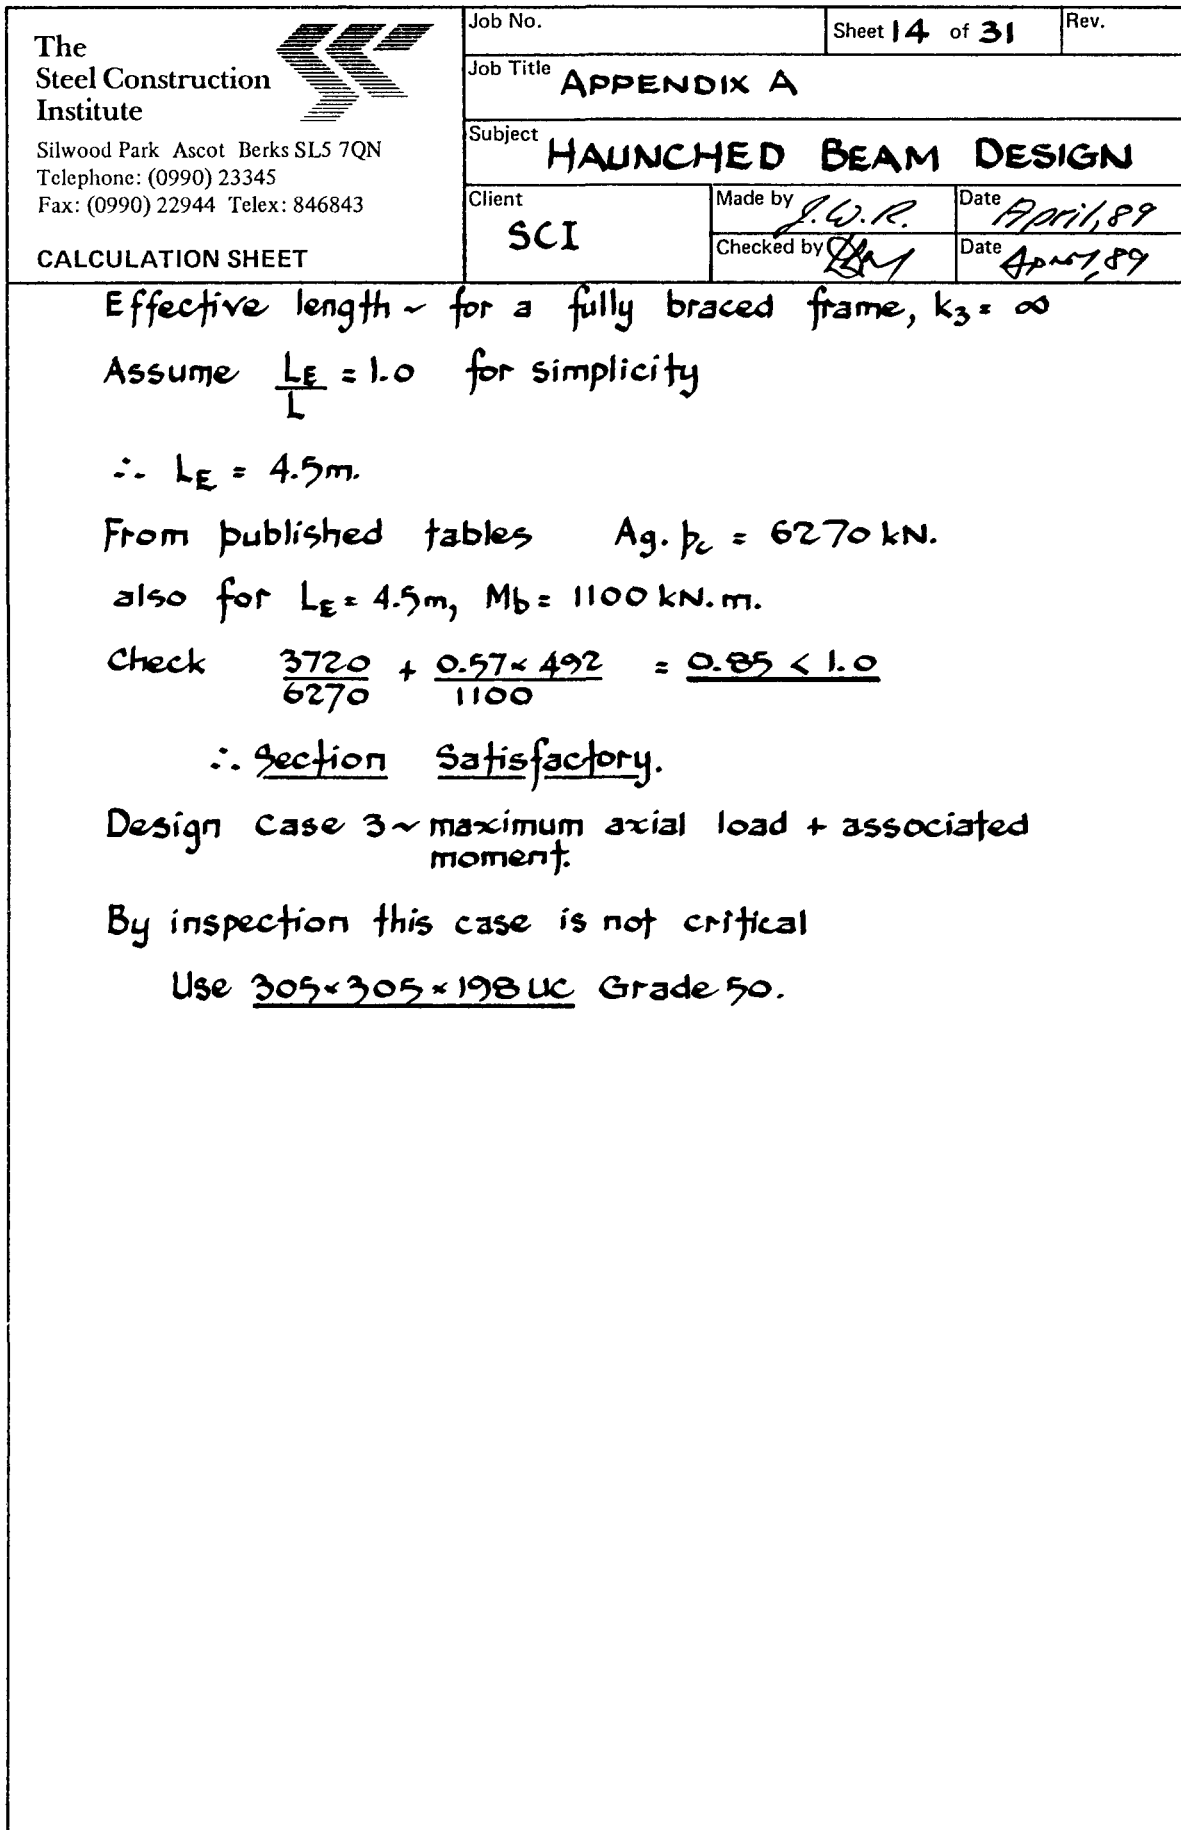 The
Steel Construction
Institute
Silwood Park Ascot Berks SL5 7QN
Telephone: (0990) 23345
Fax: (0990) 22944 Telex: 846843
CALCULATION SHEET
Job No.
Sheet 14 of 31
Rev.
Job Title APPENDIX A
Subject HAUNCHED BEAM DESIGN
Client SCI
Made by J.W.R.
Date April, 89
Checked by
Date April, 89
Effective length ~ for a fully braced frame, k₃ = ∞
Assume L_E/L = 1.0 for simplicity
∴ L_E = 4.5m.
From published tables Ag. p_c = 6270 kN.
also for L_E = 4.5m, M_b = 1100 kN.m.
Check 3720/6270 + 0.57 × 492/1100 = 0.85 < 1.0
∴ Section Satisfactory.
Design case 3 ~ maximum axial load + associated
moment.
By inspection this case is not critical
Use 305 × 305 × 198 UC Grade 50.